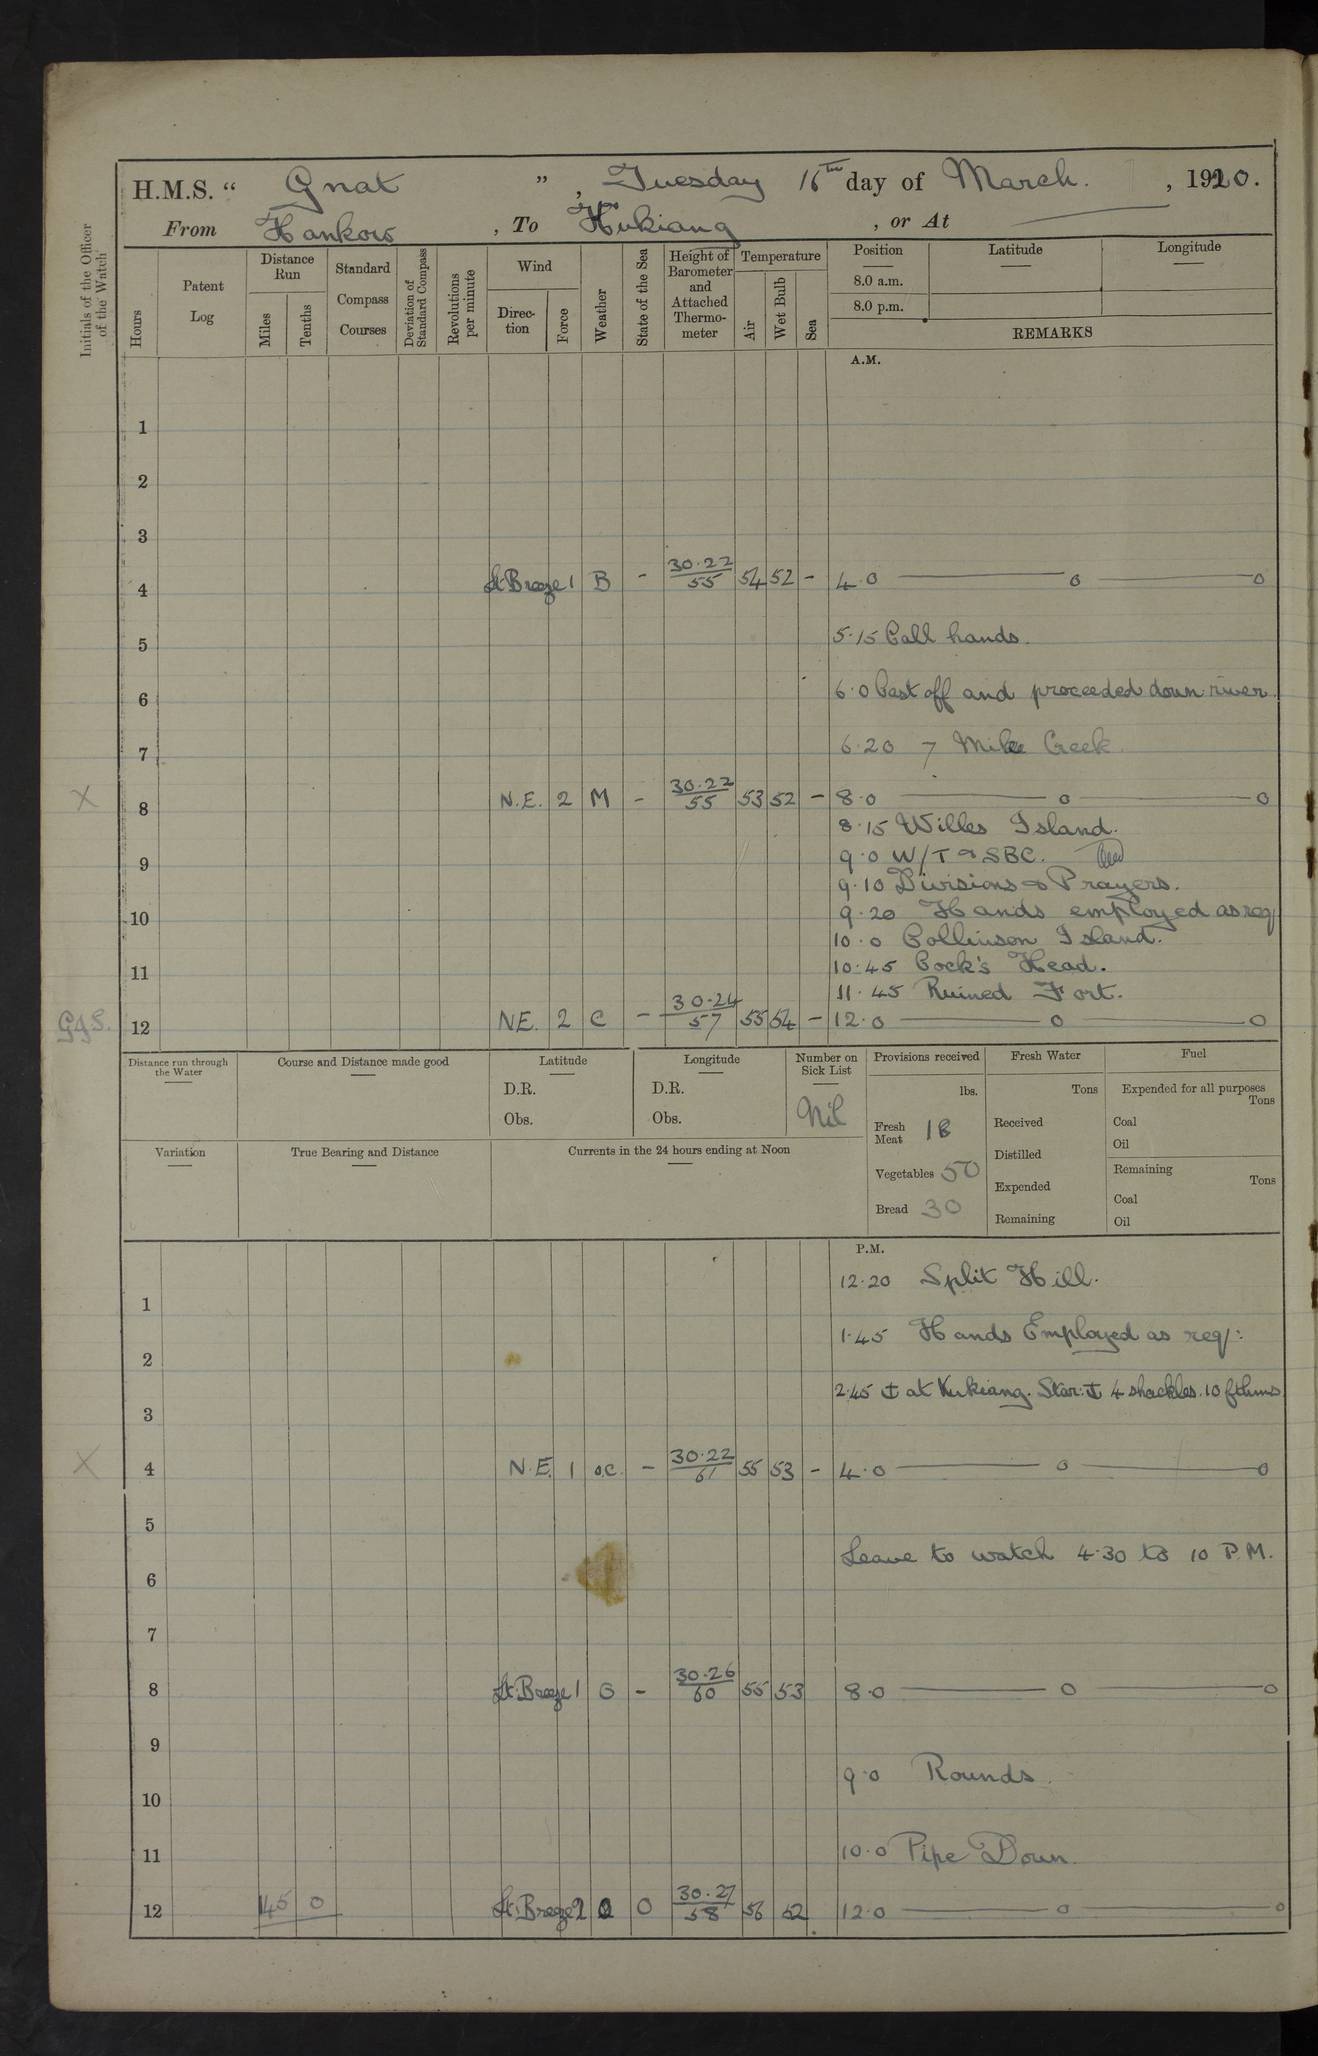 H.M.S. “ Gnat ” , Tuesday 16th day of March. , 1920.
From Hankow , To Kukiang , or At
Initials of the Officer of the Watch
Hours
Patent Log
Distance Run
Miles
Tenths
Standard Compass Courses
Deviation of Standard Compass
Revolutions per minute
Wind
Direc-tion
Force
Weather
State of the Sea
Height of Barometer and Attached Thermo-meter
Temperature
Air
Wet Bulb
Sea
Position
8.0 a.m.
8.0 p.m.
Latitude
Longitude
REMARKS
A.M.
1
2
3
4 Lt Breeze 1 B - 30.22/55 54 52 - 4.0 — o — o
5 5.15 Call hands.
6 6.0 Cast off and proceeded down river.
7 6.20 7 Mile Creek
X 8 N.E. 2 M - 30.22/55 53 52 - 8.0 — o — o
8.15 Willes Island.
9 9.0 W/T & SBC.
9.10 Divisions & Prayers.
10 9.20 Hands employed as req
10.0 Collinson Island.
11 10.45 Cock's Head.
11.45 Ruined Fort.
12 NE. 2 C - 30.24/57 55 54 - 12.0 — o — o
Distance run through the Water
Course and Distance made good
Latitude
D.R.
Obs.
Longitude
D.R.
Obs.
Number on Sick List
Nil
Provisions received
lbs.
Fresh Meat 18
Vegetables 50
Bread 30
Fresh Water
Tons
Received
Distilled
Expended
Remaining
Fuel
Expended for all purposes
Tons
Coal
Oil
Remaining
Tons
Coal
Oil
Variation
True Bearing and Distance
Currents in the 24 hours ending at Noon
P.M.
12.20 Split Hill.
1
1.45 Hands Employed as req:
2
2.45 ⚓ at Kukiang. Star: ⚓ 4 shackles. 10 fthms
3
X 4 N.E. 1 o.c. - 30.22/61 55 53 - 4.0 — o — o
5
Leave to watch 4.30 to 10 P.M.
6
7
8 Lt. Breeze 1 O - 30.26/60 55 53 8.0 — o — o
9
9.0 Rounds.
10
11 10.0 Pipe Down.
12 145 0 Lt. Breeze 2 O 30.27/58 56 52 12.0 — o — o